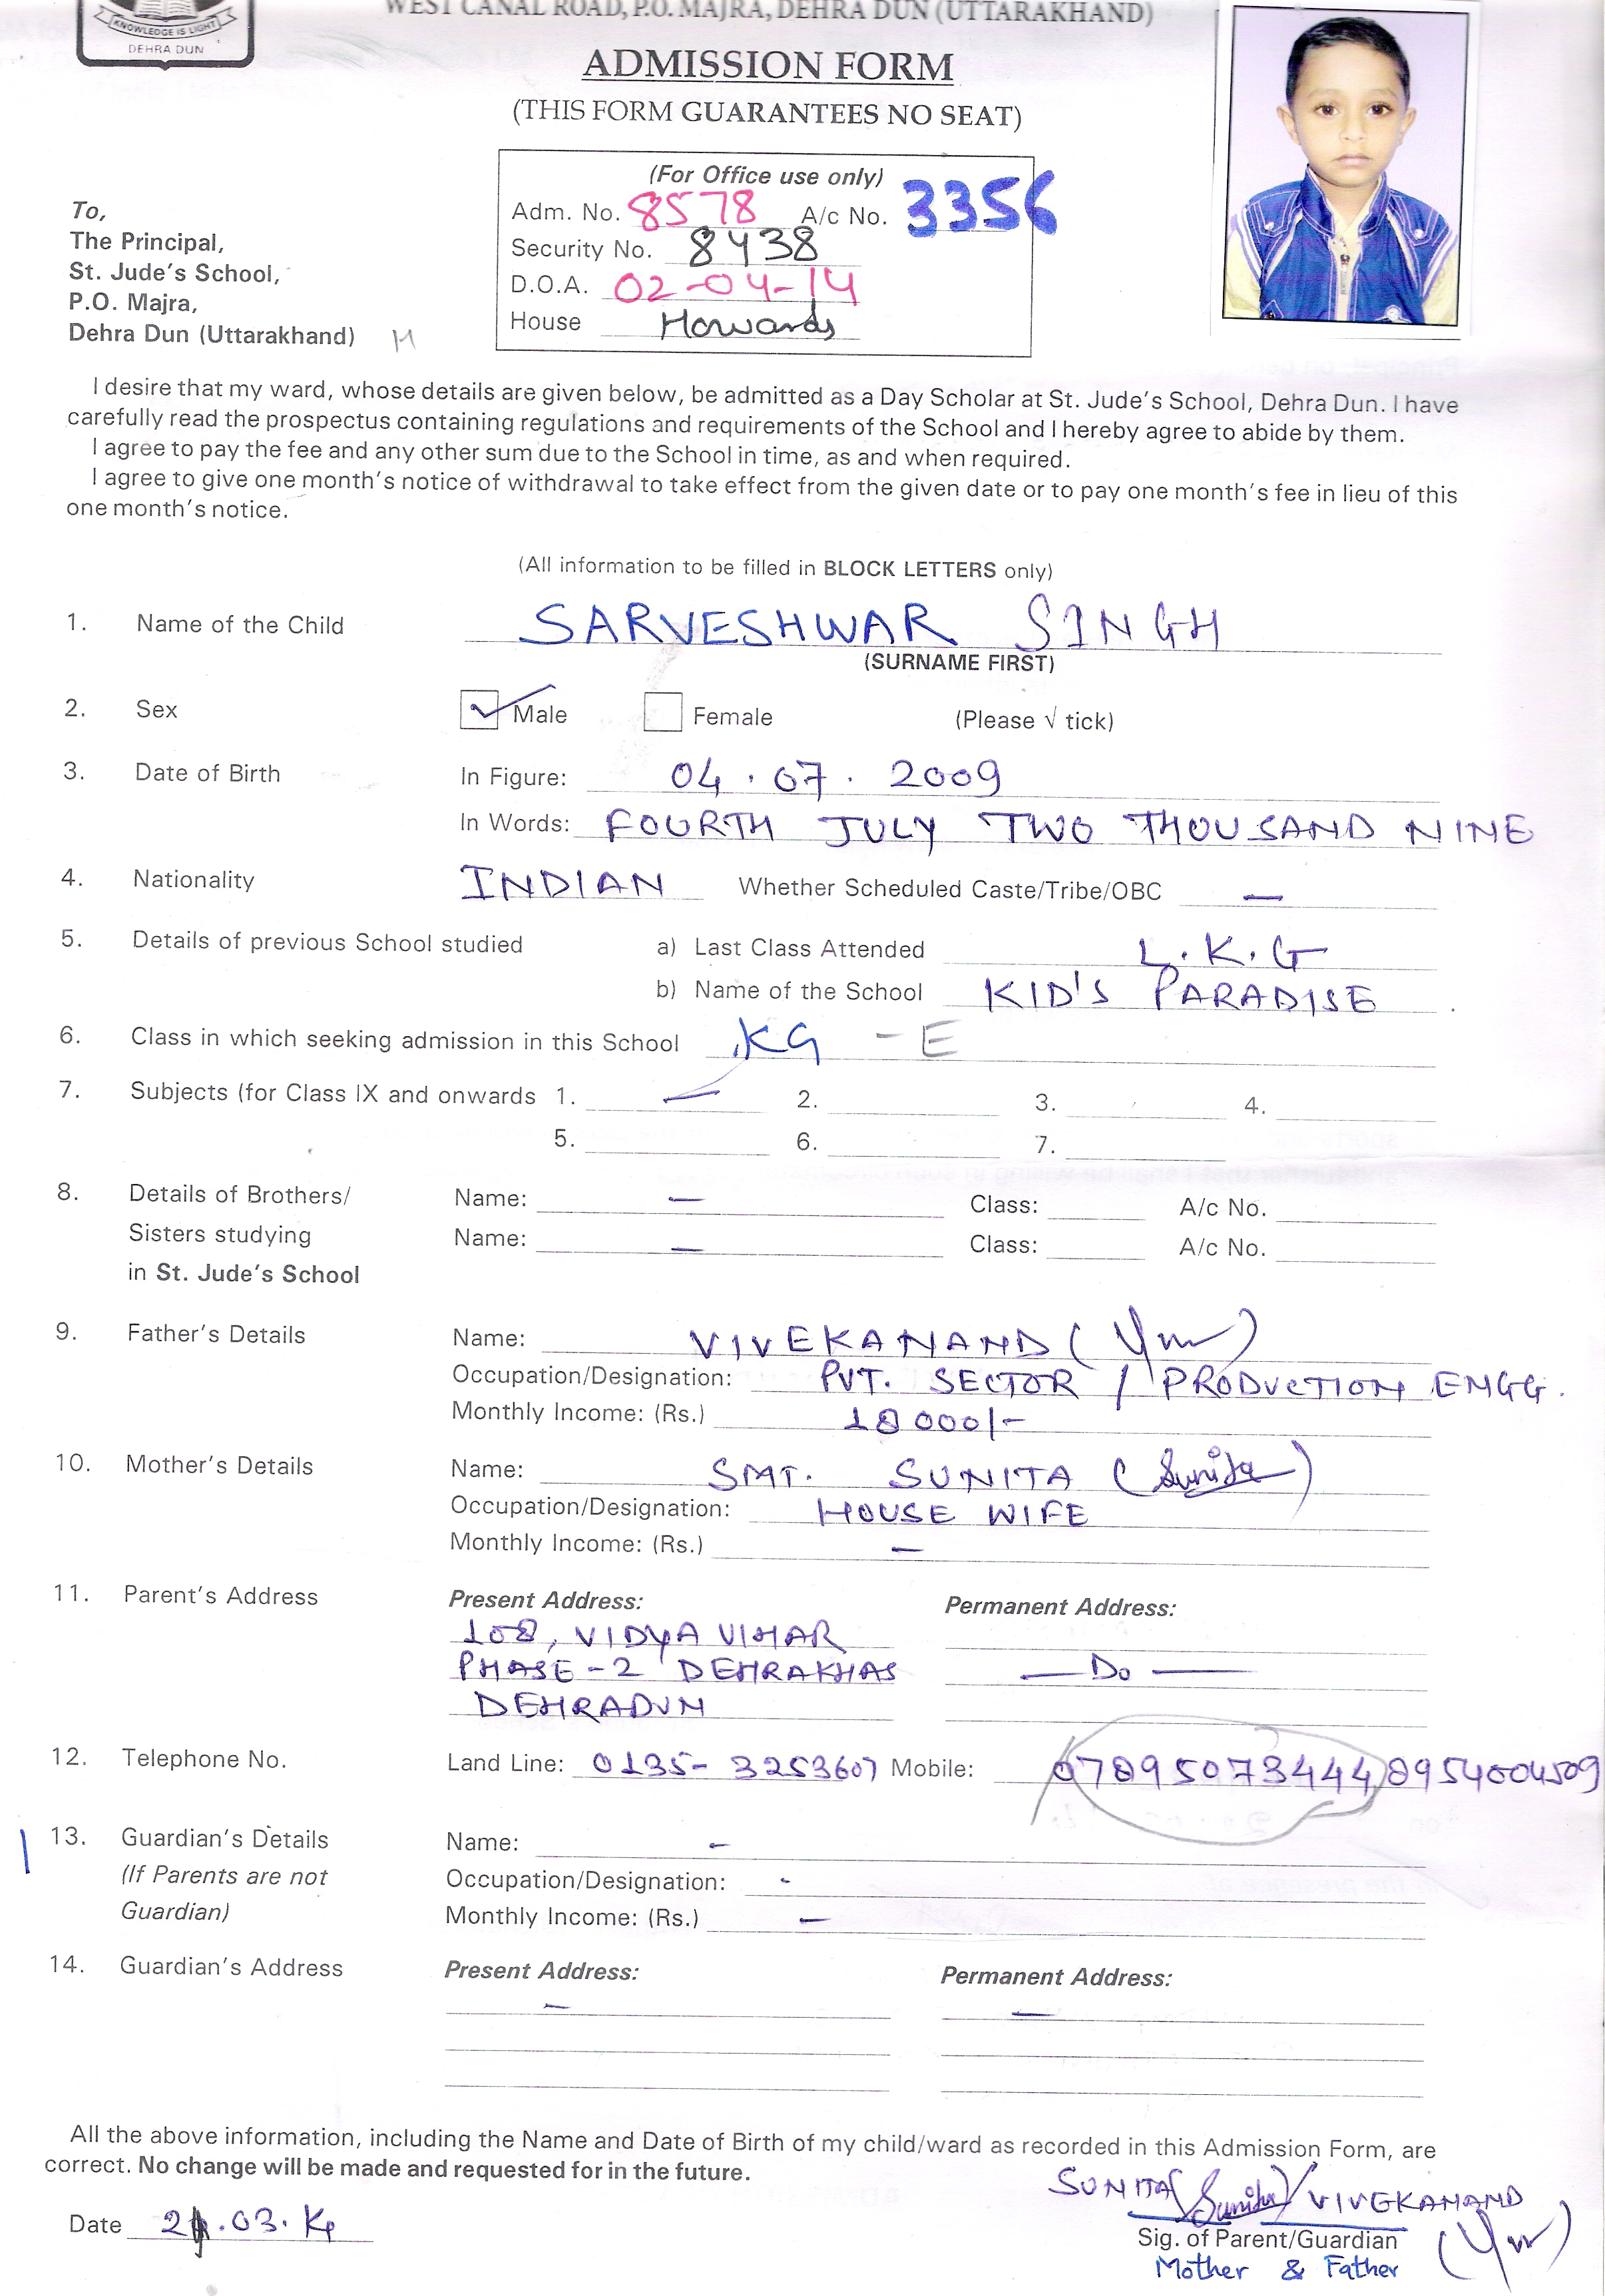 WEST CANAL ROAD, P.O. MAJRA, DEHRA DUN (UTTARAKHAND)
KNOWLEDGE IS LIGHT
DEHRA DUN
ADMISSION FORM
(THIS FORM GUARANTEES NO SEAT)
(For Office use only)
Adm. No. 8578 A/c No. 3356
Security No. 8438
D.O.A. 02-04-14
House Howards
To,
The Principal,
St. Jude's School,
P.O. Majra,
Dehra Dun (Uttarakhand) H
I desire that my ward, whose details are given below, be admitted as a Day Scholar at St. Jude's School, Dehra Dun. I have
carefully read the prospectus containing regulations and requirements of the School and I hereby agree to abide by them.
I agree to pay the fee and any other sum due to the School in time, as and when required.
I agree to give one month's notice of withdrawal to take effect from the given date or to pay one month's fee in lieu of this
one month's notice.
(All information to be filled in BLOCK LETTERS only)
1. Name of the Child SARVESHWAR SINGH
(SURNAME FIRST)
2. Sex ✓ Male Female (Please √ tick)
3. Date of Birth In Figure: 04.07.2009
In Words: FOURTH JULY TWO THOUSAND NINE
4. Nationality INDIAN Whether Scheduled Caste/Tribe/OBC —
5. Details of previous School studied a) Last Class Attended L.K.G
b) Name of the School KID'S PARADISE
6. Class in which seeking admission in this School KG - E
7. Subjects (for Class IX and onwards 1. — 2. 3. 4.
5. 6. 7.
8. Details of Brothers/ Name: — Class: A/c No.
Sisters studying Name: — Class: A/c No.
in St. Jude's School
9. Father's Details Name: VIVEKANAND ( )
Occupation/Designation: PVT. SECTOR / PRODUCTION ENGG.
Monthly Income: (Rs.) 18000/-
10. Mother's Details Name: SMT. SUNITA (Sunita)
Occupation/Designation: HOUSE WIFE
Monthly Income: (Rs.) —
11. Parent's Address Present Address: Permanent Address:
108, VIDYA VIHAR
PHASE-2 DEHRAKHAS — Do —
DEHRADUN
12. Telephone No. Land Line: 0135- 3253607 Mobile: 07895073444 8954004509
13. Guardian's Details Name: —
(If Parents are not Occupation/Designation: -
Guardian) Monthly Income: (Rs.) —
14. Guardian's Address Present Address: Permanent Address:
— —
All the above information, including the Name and Date of Birth of my child/ward as recorded in this Admission Form, are
correct. No change will be made and requested for in the future.
SUNITA (Sunita) / VIVEKANAND
Date .03.14 Sig. of Parent/Guardian
Mother & Father